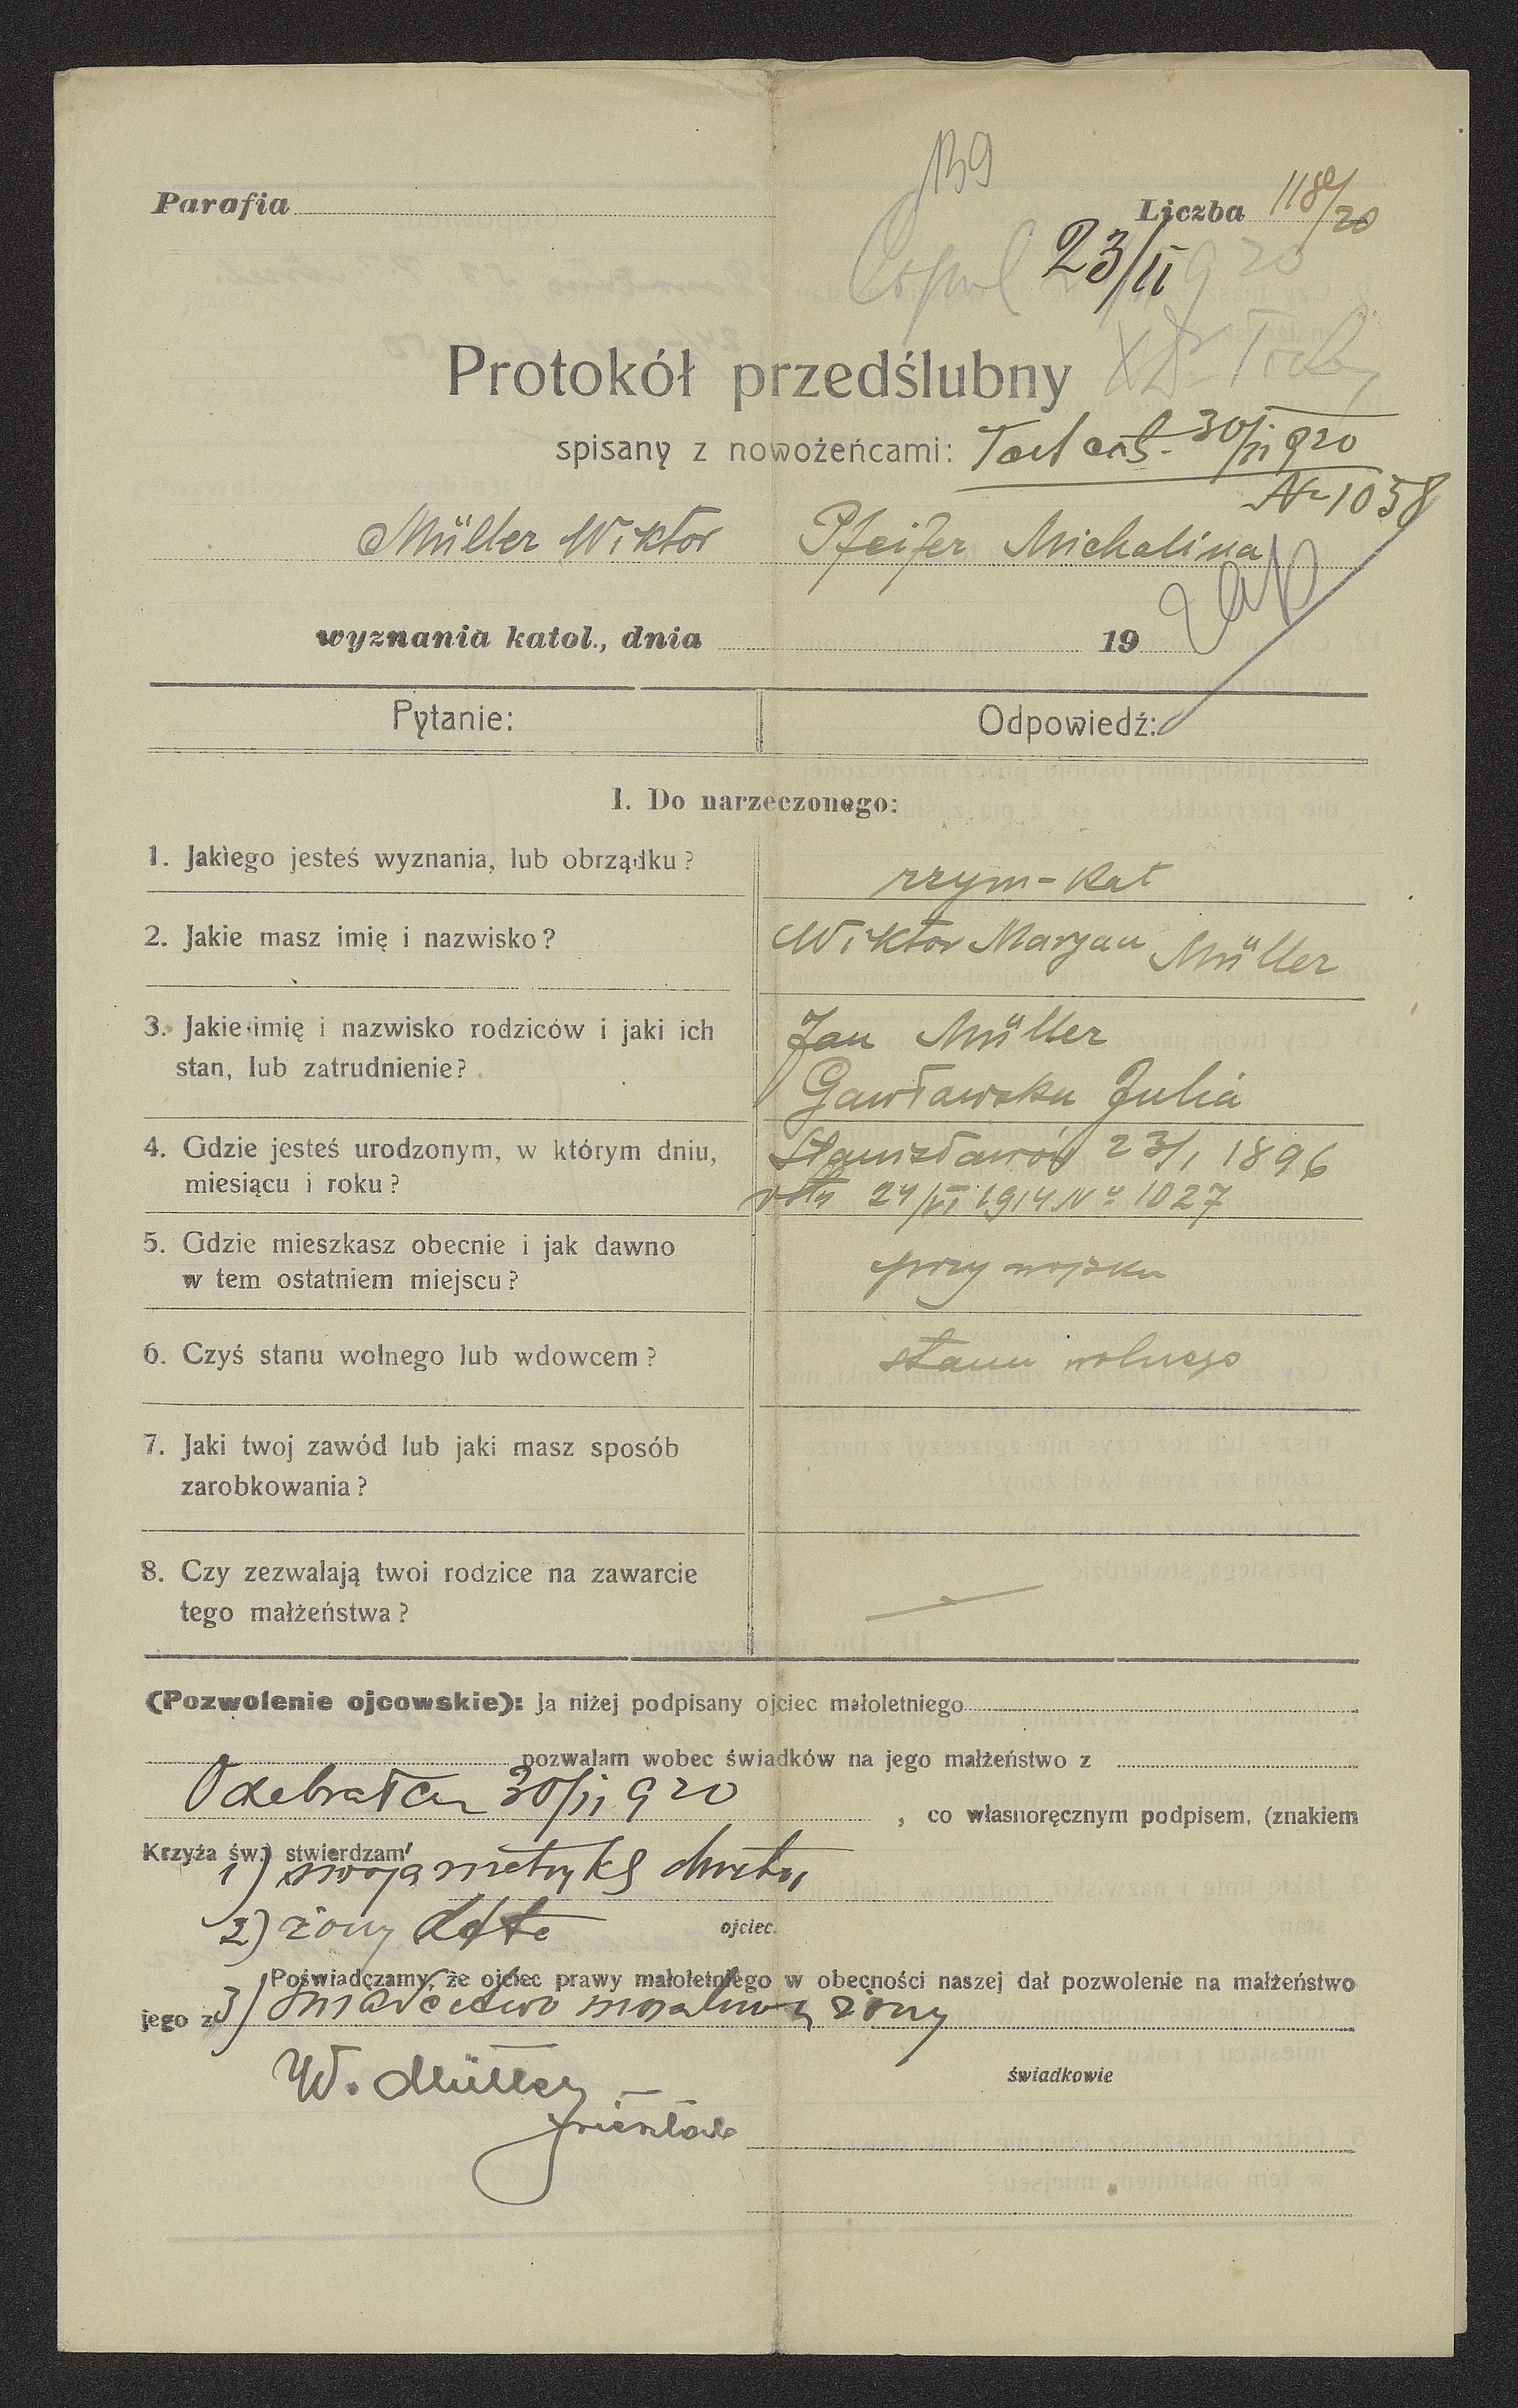 139
Parafia
Liczba 118/20
Copul 23/II 920
XDr
Protokół przedślubny
spisany z nowożeńcami:
30/II 920
Nr 1058
Müller Wiktor Pfeifer Michalina
wyznania katol., dnia 19
zap
Pytanie: Odpowiedź:
I. Do narzeczonego:
1. Jakiego jesteś wyznania, lub obrządku?
rzym-kat
2. Jakie masz imię i nazwisko?
Wiktor Maryan Müller
3. Jakie imię i nazwisko rodziców i jaki ich
stan, lub zatrudnienie?
Jan Müller
Julia
4. Gdzie jesteś urodzonym, w którym dniu,
miesiącu i roku?
Stanisławów 23/1 1896
24/VI 1914 No 1027
5. Gdzie mieszkasz obecnie i jak dawno
w tem ostatniem miejscu?
przy wojsku
6. Czyś stanu wolnego lub wdowcem?
stanu wolnego
7. Jaki twoj zawód lub jaki masz sposób
zarobkowania?
8. Czy zezwalają twoi rodzice na zawarcie
tego małżeństwa?
(Pozwolenie ojcowskie): Ja niżej podpisany ojciec małoletniego
pozwalam wobec świadków na jego małżeństwo z
Odebrałem 30/II 920
, co własnoręcznym podpisem, (znakiem
Krzyża św.) stwierdzam
1) swoją metrykę chrztu
2) żony dtto
ojciec.
Poświadczamy, że ojciec prawy małoletniego w obecności naszej dał pozwolenie na małżeństwo
jego z
3) świadectwo moralności żony
W. Müller
świadkowie